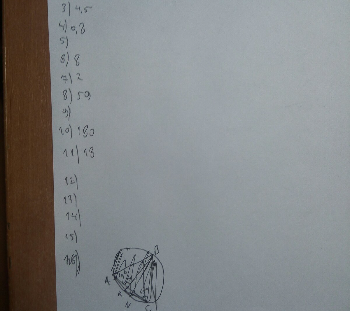 3) 4,5
4) 0,8
5)
6) 8
7) 2
8) 59
9)
10) 180
11) 18
12)
13)
14)
15)
16)
B
A
N
C